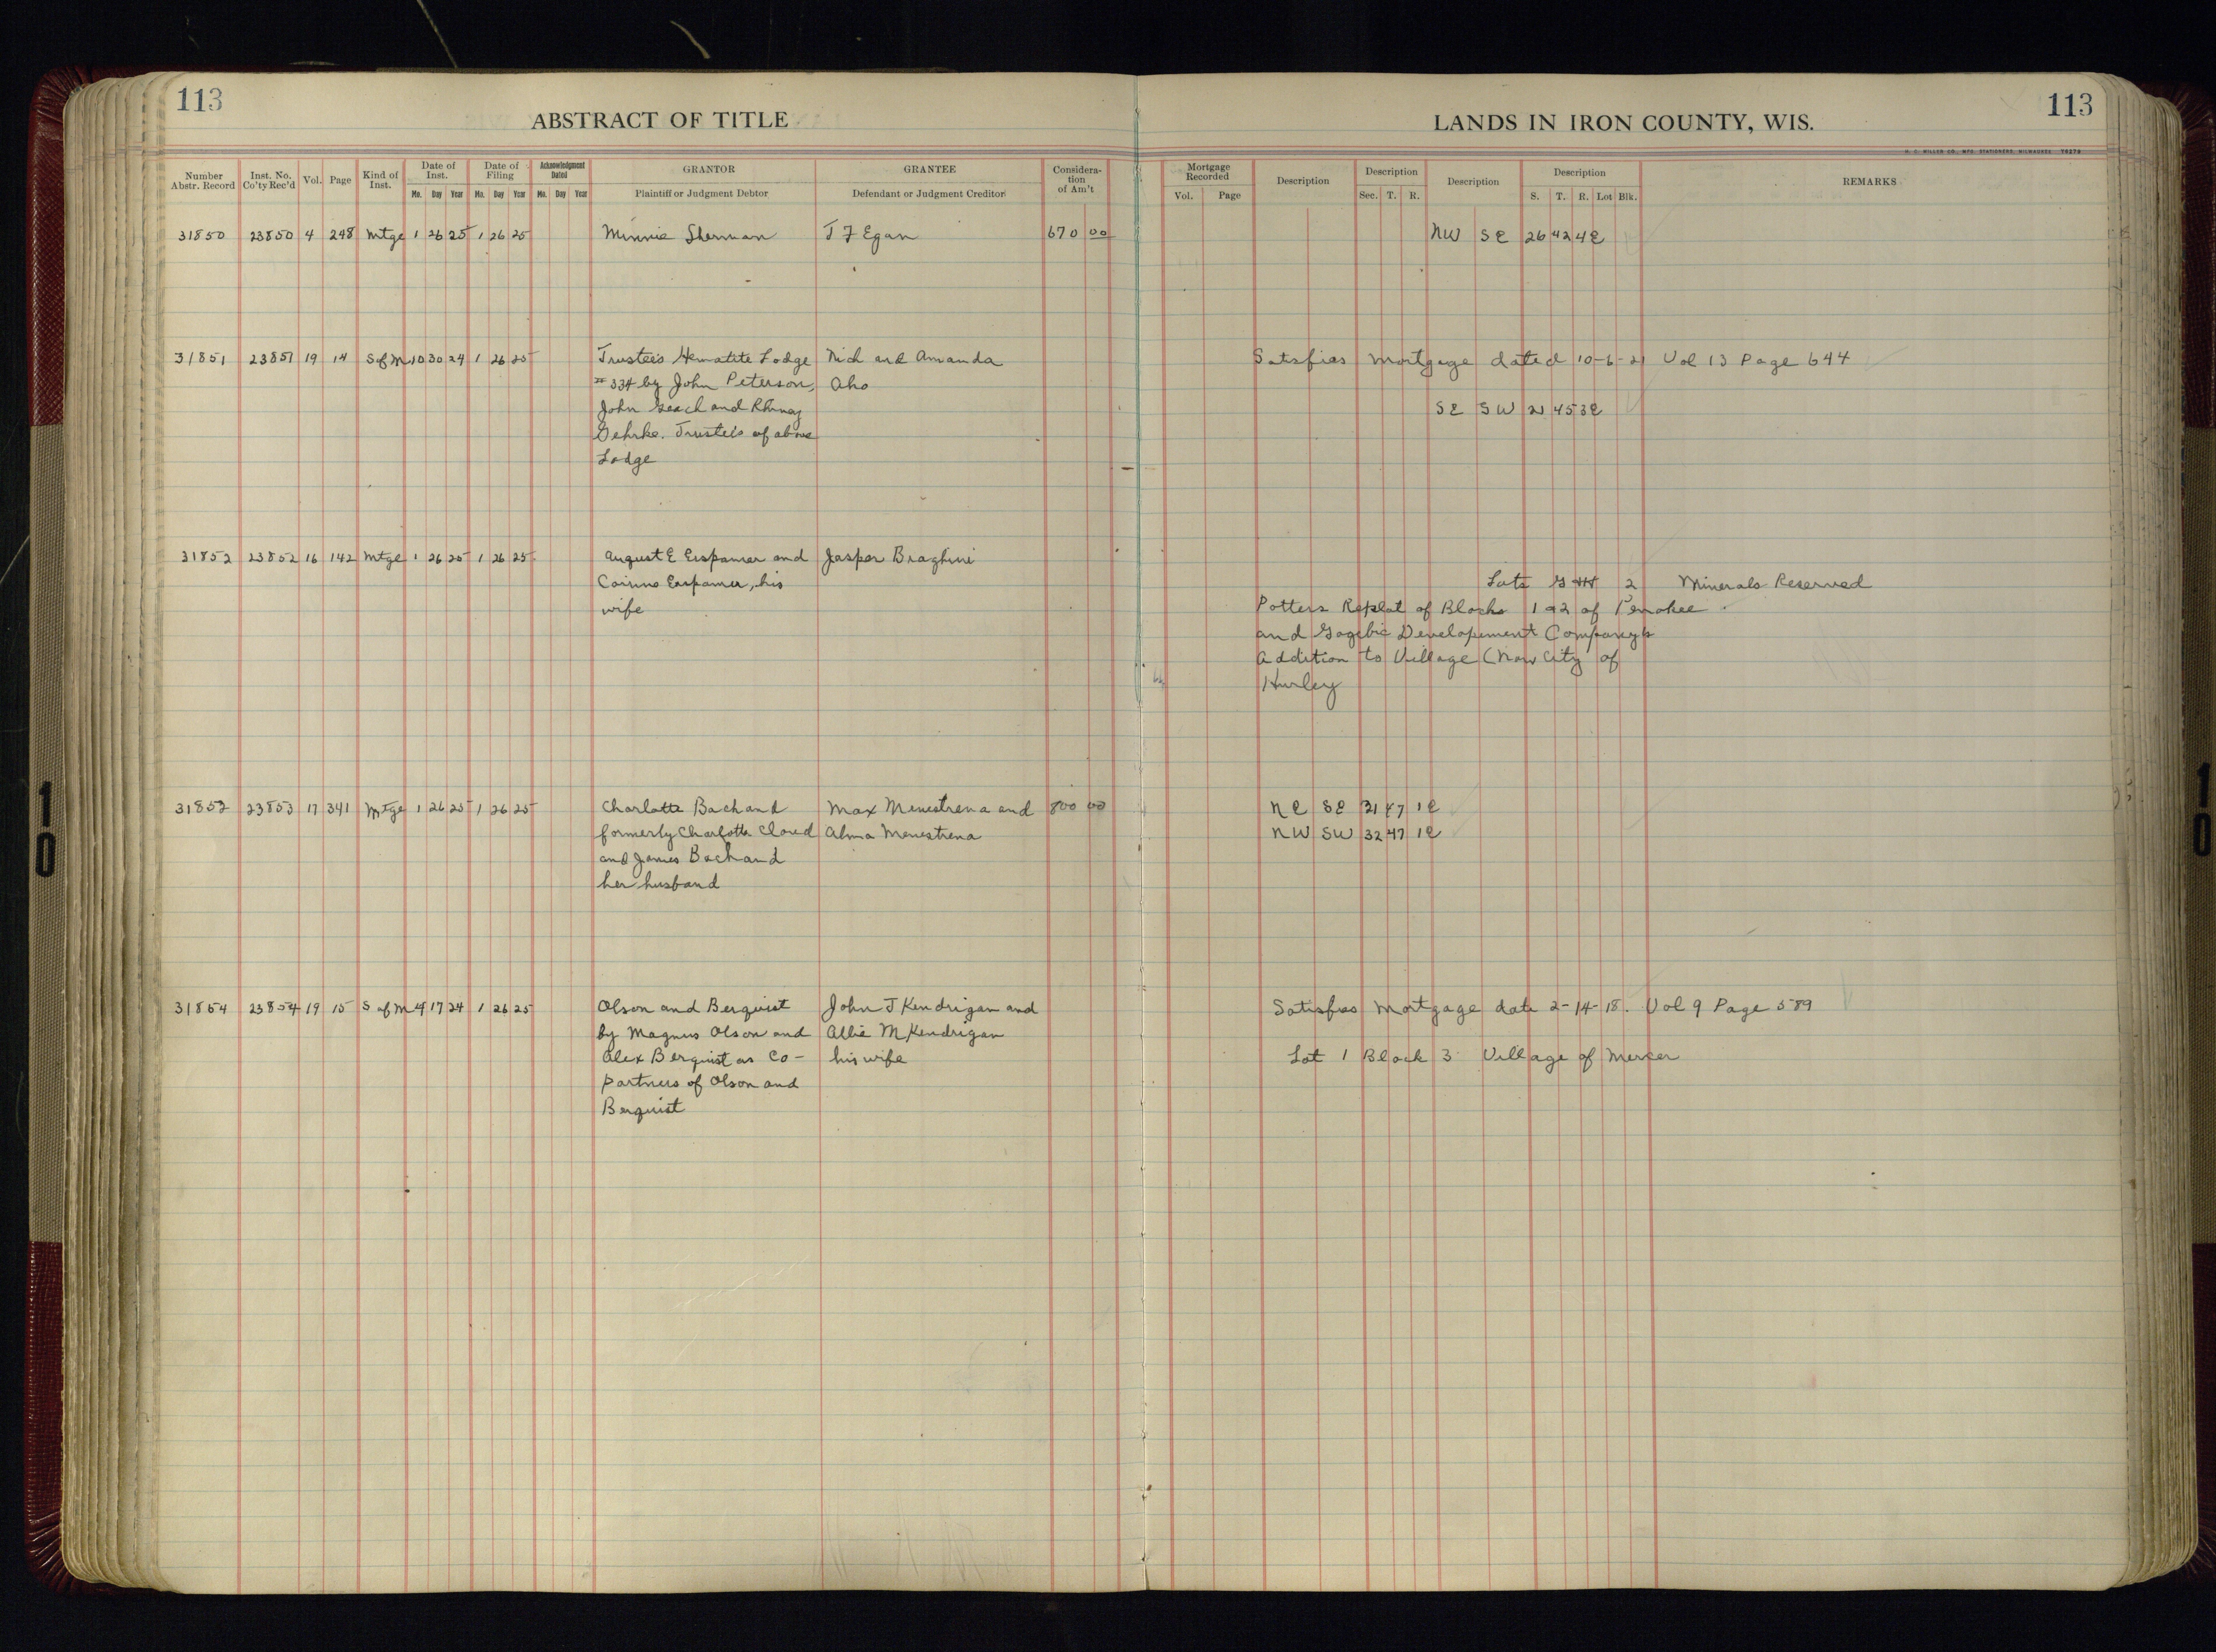 113
113
ABSTRACT OF TITLE
LANDS IN IRON COUNTY, WIS.
H. C. MILLER CO., MFG. STATIONERS, MILWAUKEE
Number Abstr. Record
Inst. No. Co'ty Rec'd
Vol.
Page
Kind of Inst.
Date of Inst.
Mo. Day Year
Date of Filing
Mo. Day Year
Acknowledgment Dated
Mo. Day Year
GRANTOR
Plaintiff or Judgment Debtor
GRANTEE
Defendant or Judgment Creditor
Consideration of Am't
Mortgage Recorded
Vol. Page
Description
Description
Sec. T. R.
Description
Description
S. T. R. Lot Blk.
REMARKS
31850 23850 4 248 Mtge 1 26 25 1 26 25 Minnie Sherman J F Egan 670 00 NW SE 26 42 4E
31851 23851 19 14 S of M 10 30 24 1 26 25 Trustees Hematite Lodge Nick and Amanda Satisfies Mortgage dated 10-6-21 Vol 13 Page 644
# 334 by John Peterson, Aho
John Geach and SE SW 21 45 3E
Gehrke. Trustees of above
Lodge
31852 23852 16 142 Mtge 1 26 25 1 26 25 August E Erspamer and Jasper Braghini
Corinne Erspamer, his Lots 2 Minerals Reserved
wife Potters Replat of Blocks 1 & 2 of Penokee
and Gogebic Developement Companys
Addition to Village (Now City of
Hurley
31853 23853 17 341 Mtge 1 26 25 1 26 25 Charlotte Bachand Max Menestrena and 800 00 NE SE 31 47 1E
formerly Charlotte Alma Menestrena NW SW 32 47 1E
and James Bachand
her husband
31854 23854 19 15 S of M 4 17 24 1 26 25 Olson and Berquist John J Kendrigan and Satisfies Mortgage date 2-14-18. Vol 9 Page 589
by Magnus Olson and Allie M Kendrigan
Alex Berquist as Co- his wife Lot 1 Block 3 Village of Mercer
partners of Olson and
Berquist
10
10